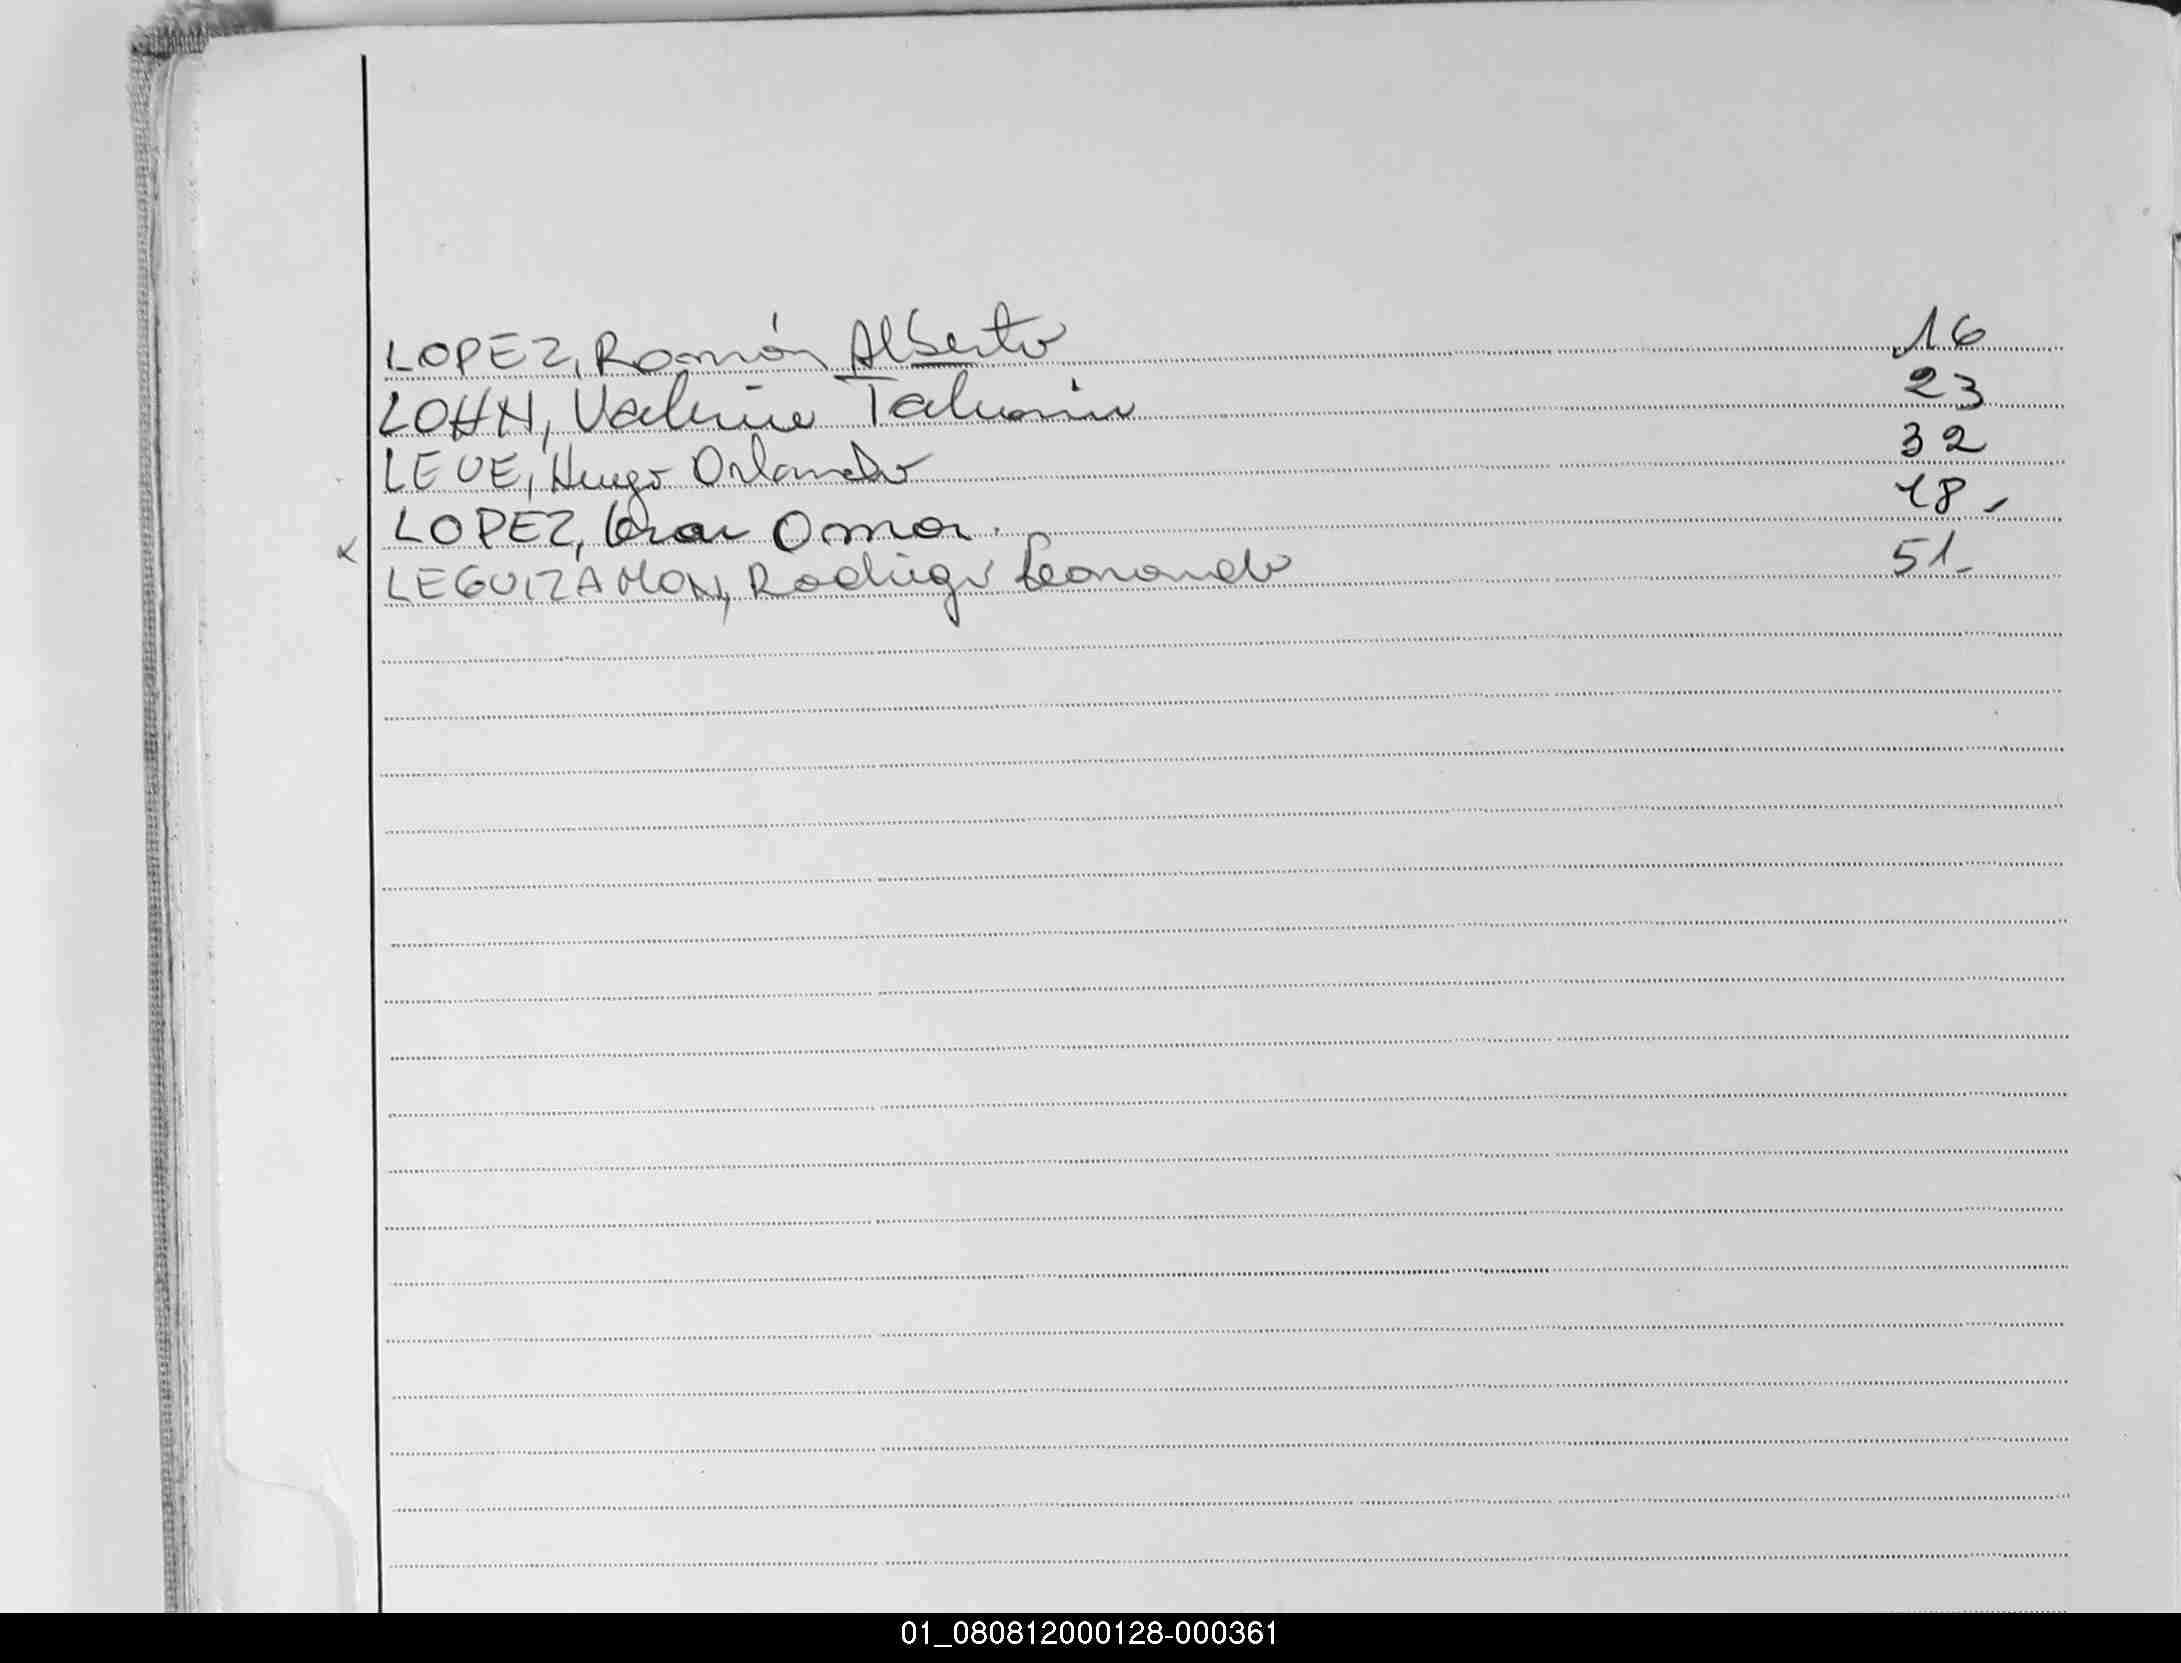 LOPEZ, Ramón Alberto 16
LOHN, Valeria 23
LEUE, Hugo Orlando 32
LOPEZ, Omar. 18-
x LEGUIZAMON, Rodrigo Leonardo 51-
01_080812000128-000361